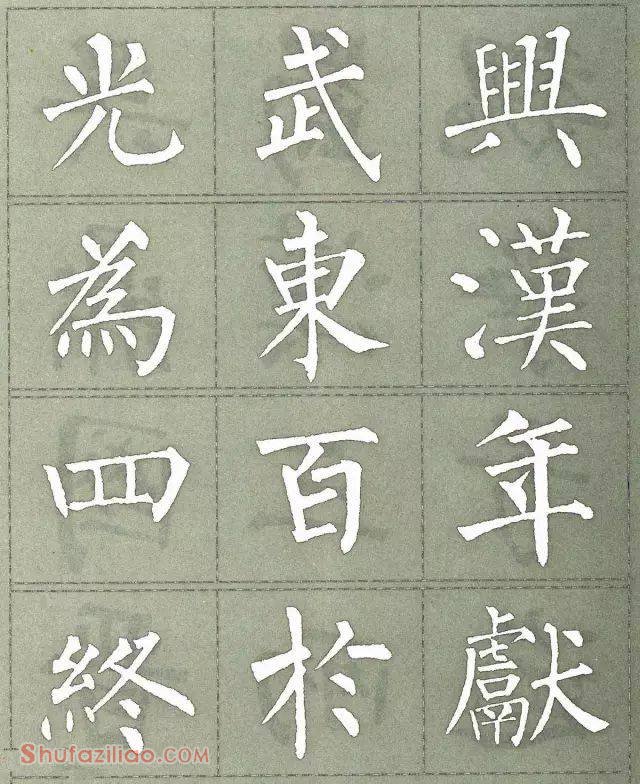 光武興
為東漢
四百年
終於獻
Shufaziliao.com